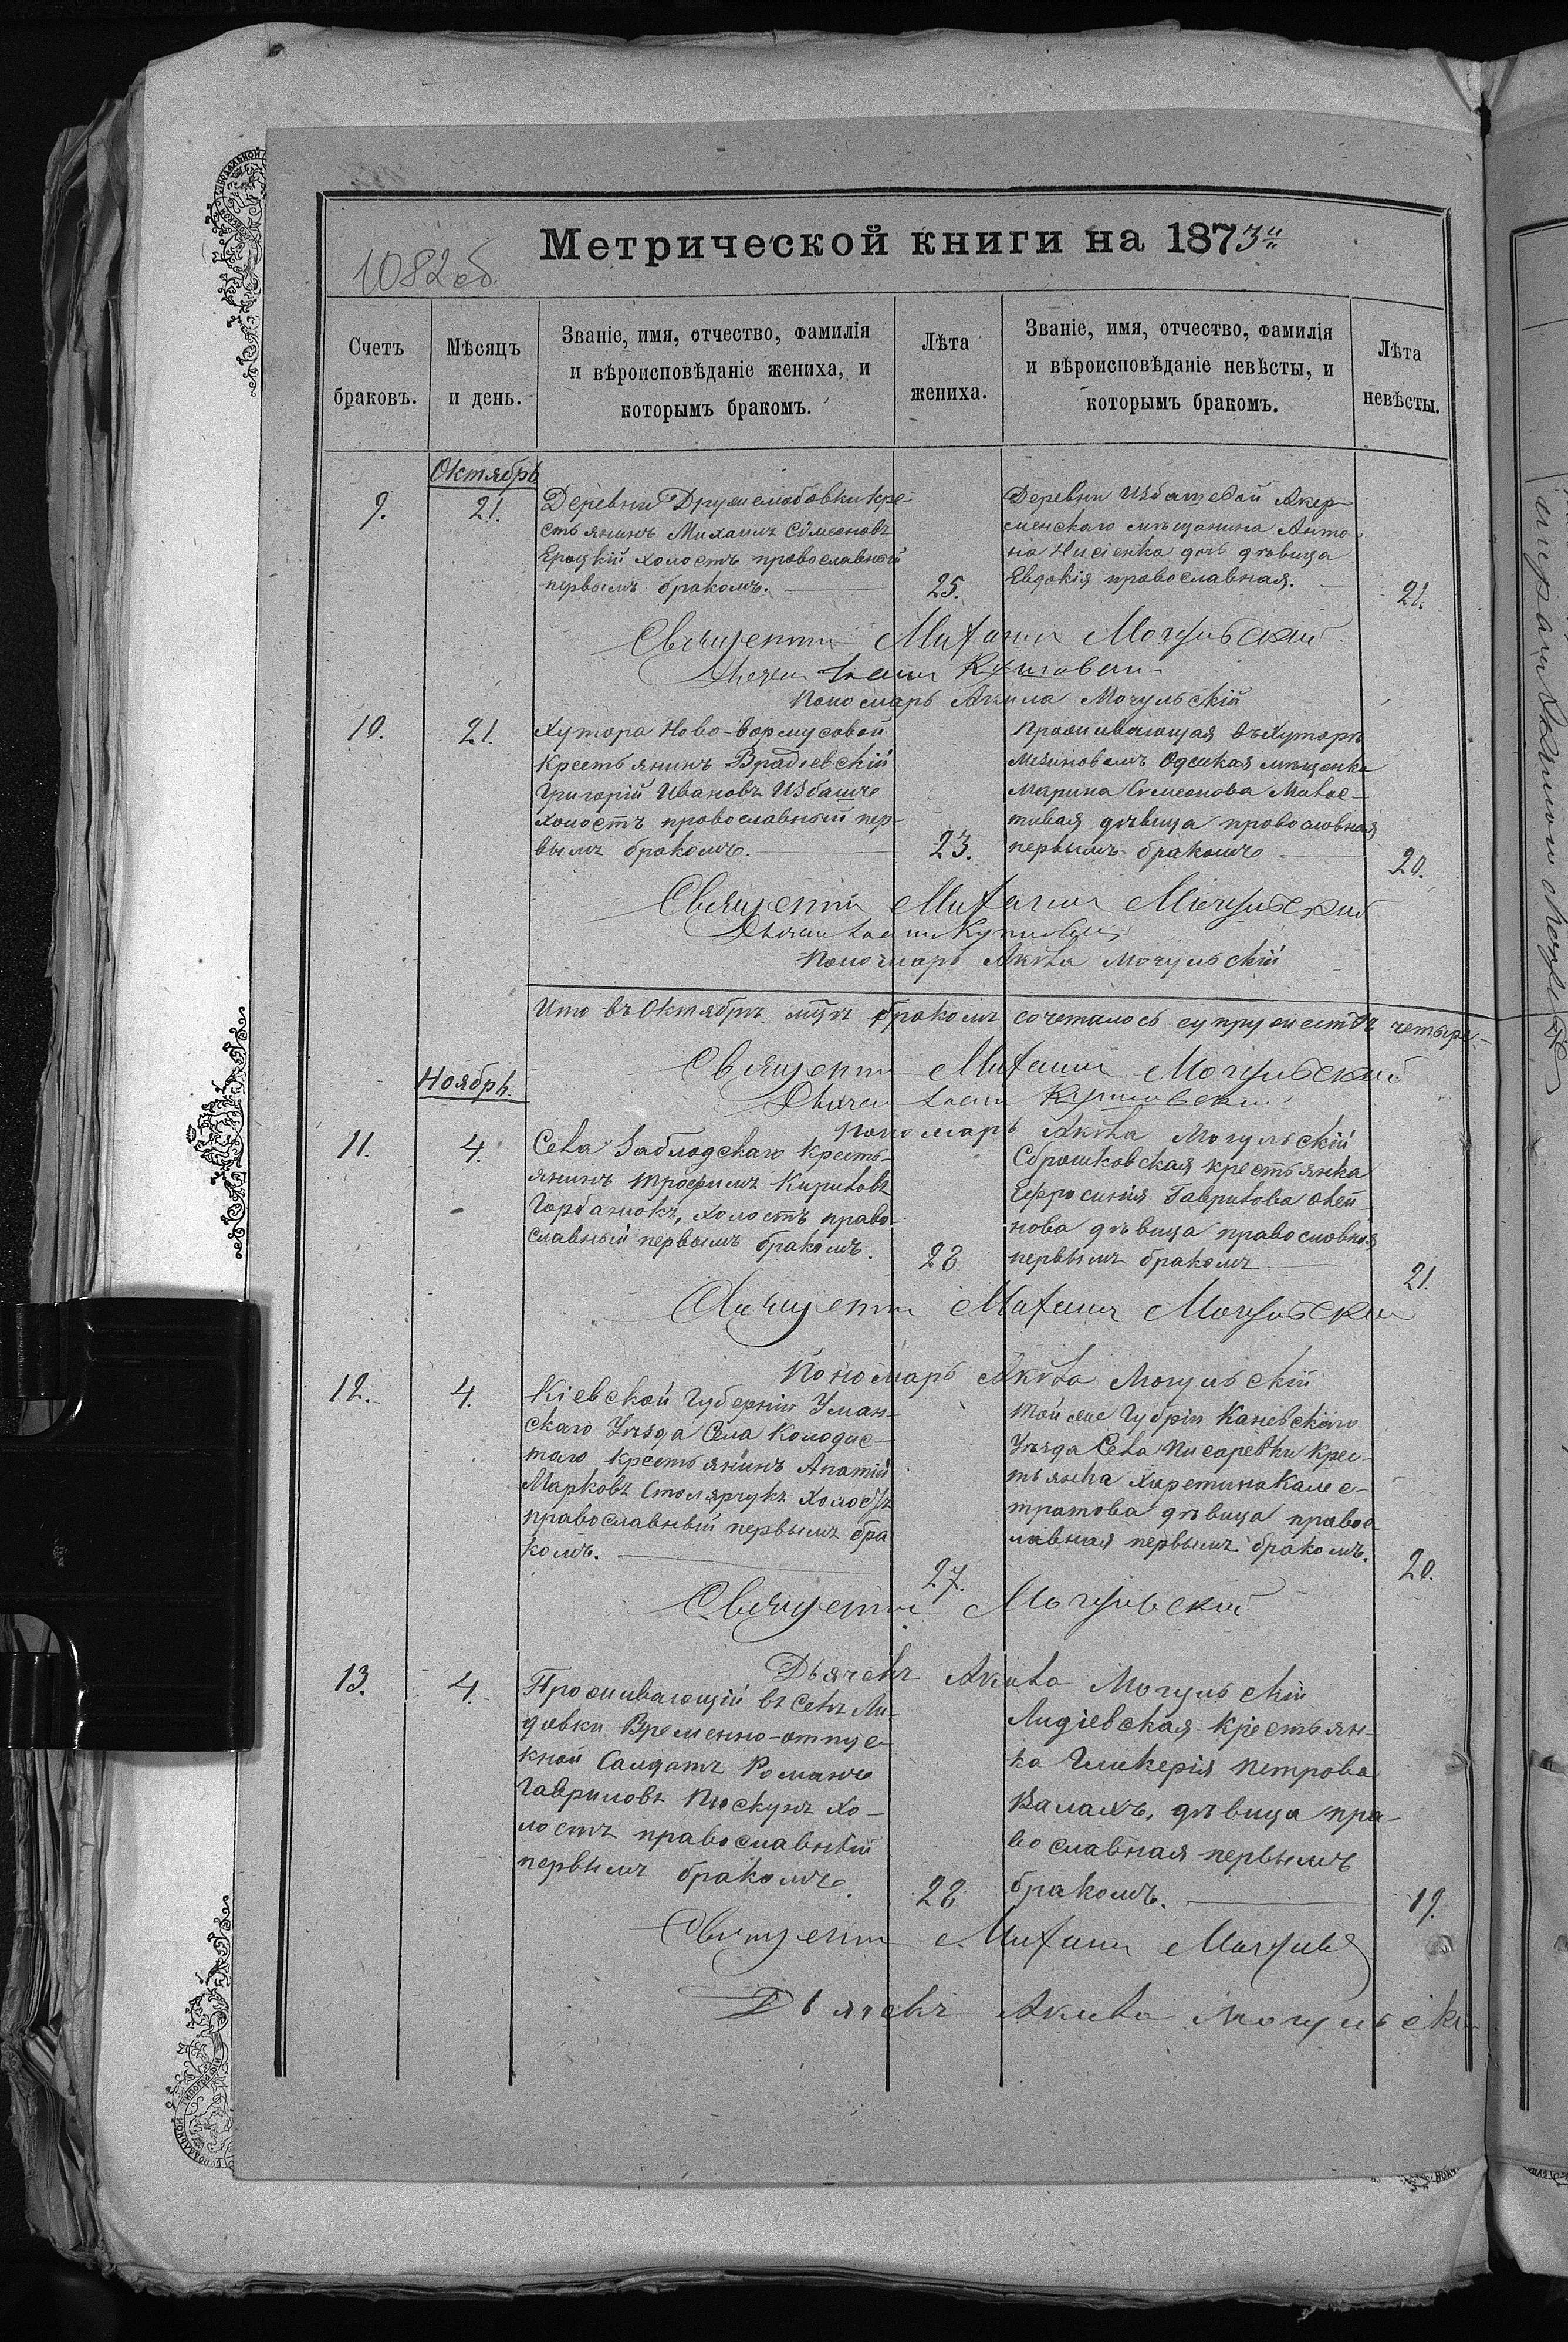 Метрической книги на 1873й
1082об.
Счетъ браковъ.
Мѣсяцъ и день.
Званіе, имя, отчество, фамилія
и вѣроисповѣданіе жениха, и
которымъ бракомъ.
Лѣта жениха.
Званіе, имя, отчество, фамилія
и вѣроисповѣданіе невѣсты, и
которымъ бракомъ.
Лѣта невѣсты.
Октябрь
9.
21.
Деревни Дружелюбовки кре-
стьянинъ Михаилъ Симеоновъ
холостъ православный
первымъ бракомъ.
25.
Деревни Избашевой Акер-
менскаго мѣщанина Анто-
на Нисіенка дочь дѣвица
Евдокія православная.
21.
Священникъ Михаилъ Мочульскій
Дьячекъ Іоаннъ
Пономарь Акила Мочульскій
10.
21.
Хутора Ново-Вормусовой
Крестьянинъ Врадіевскій
Григорій Ивановъ Избашъ
холостъ православный пер-
вымъ бракомъ.
23.
Проживающая въ Хуторѣ
Одеская мѣщанка
Марина Симеонова
дѣвица православная
первымъ бракомъ
20.
Священникъ Михаилъ Мочульскій
Дьячекъ Іоаннъ
Пономарь Акила Мочульскій
Итого въ Октябрѣ мцѣ бракомъ сочеталось супружествъ четыре.
Священникъ Михаилъ Мочульскій
Дьячекъ Іоаннъ
Пономарь Акила Мочульскій
Ноябрь.
11.
4.
Села Заблодскаго Кресть-
янинъ Трофимъ Кириловъ
Горбанюкъ, холостъ право-
славный первымъ бракомъ.
28.
крестьянка
Ефросинія Гаврилова
дѣвица православная
первымъ бракомъ
21.
Священникъ Михаилъ Мочульскій
Пономарь Акила Мочульскій
12.
4.
Кіевской Губерніи Уман-
скаго Уѣзда Села Колодис-
таго Крестьянинъ Ипатій
Марковъ Столярчукъ Холостъ
православный первымъ бра-
комъ.
27.
Той же Губріи Каневскаго
Уѣзда Села Писаревки Крес-
тьянка Харетина Калис-
тратова дѣвица правос-
лавная первымъ бракомъ.
20.
Священникъ Мочульскій
Дьячекъ Акила Мочульскій
13.
4.
Проживающій въ Селѣ Ли-
діевки Временно-отпус-
кной Салдатъ Романъ
Гавриловъ Пискунъ Хо-
лостъ православный
первымъ бракомъ.
28
Лидіевская Крестьян-
ка Гликерія Петрова
Валахъ, дѣвица пра-
вославная первымъ
бракомъ.
19.
Священникъ Михаилъ Мочульскій
Дьячекъ Акила Мочульскій